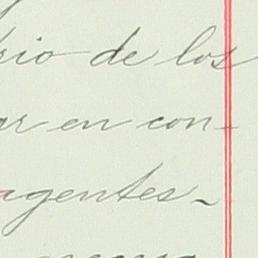 rio de los
ar en con-
agentes